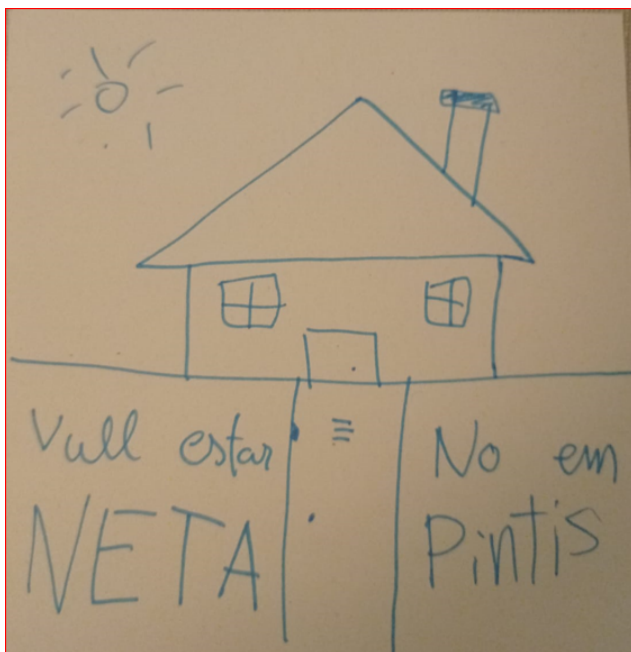 Vull estar
NETA
No em
Pintis